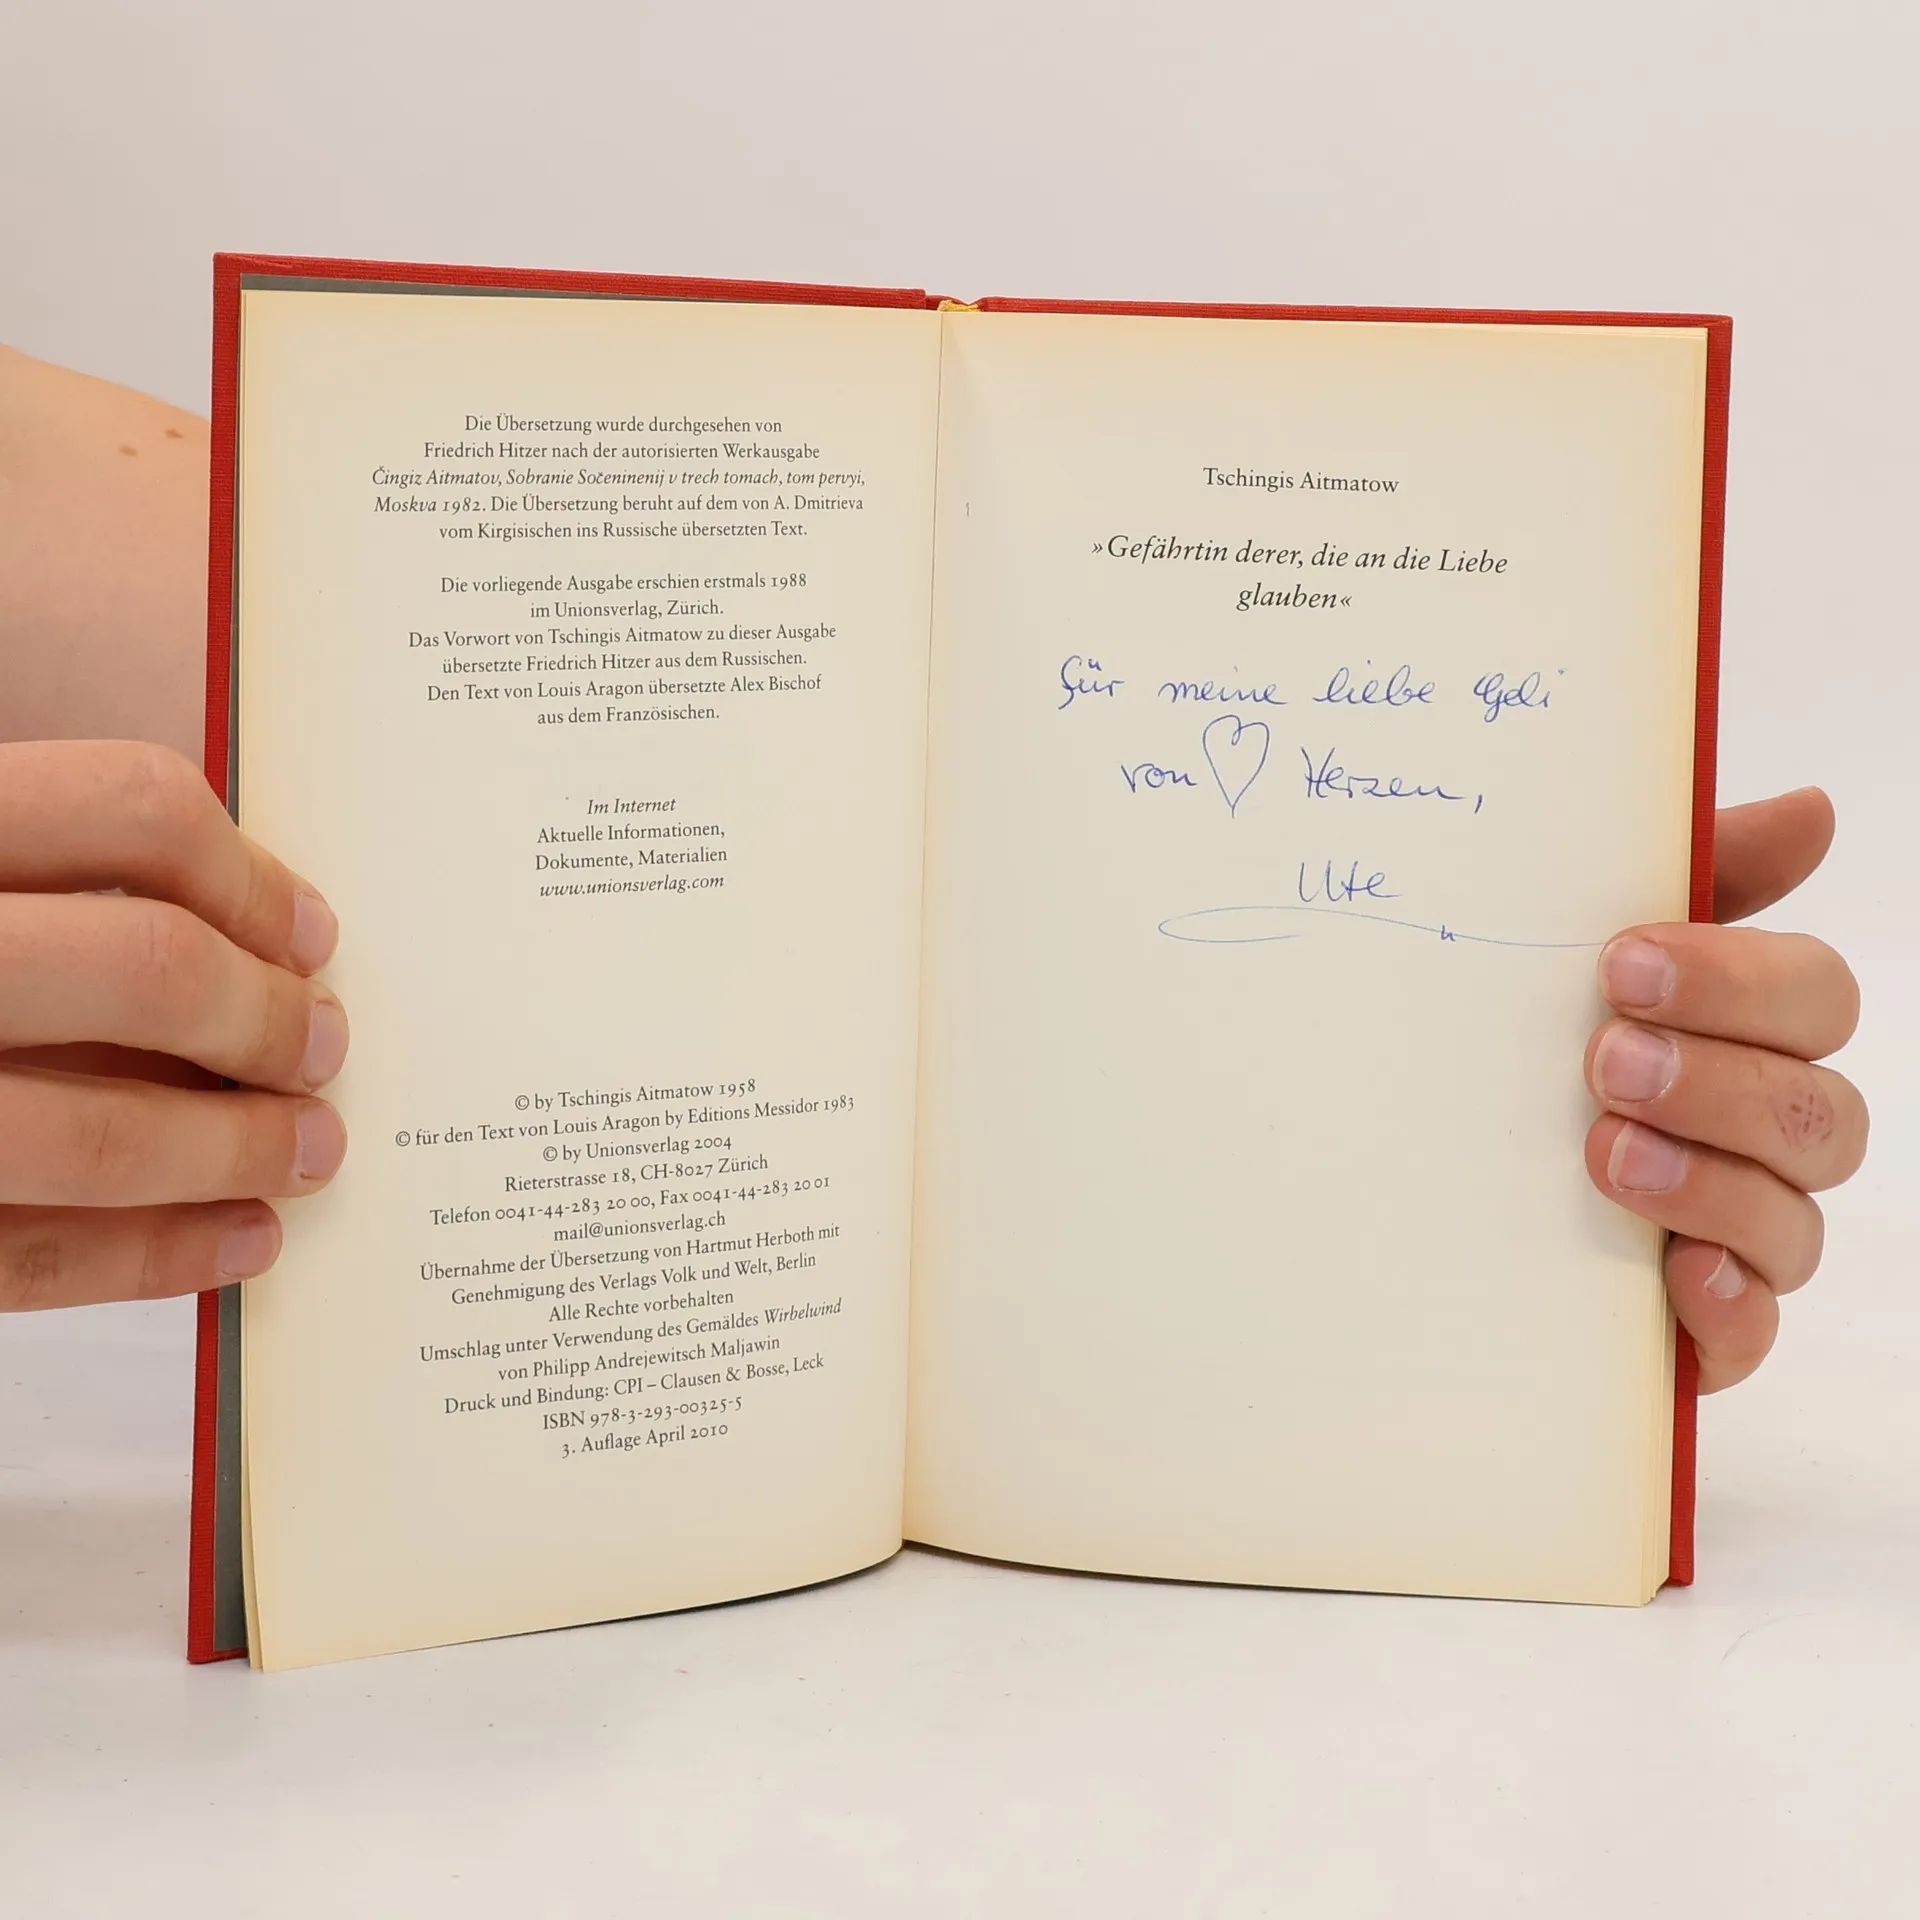 Die Übersetzung wurde durchgesehen von
Friedrich Hitzer nach der autorisierten Werkausgabe
Čingiz Aitmatov, Sobranie Sočeninenij v trech tomach, tom pervyi,
Moskva 1982. Die Übersetzung beruht auf dem von A. Dmitrieva
vom Kirgisischen ins Russische übersetzten Text.
Die vorliegende Ausgabe erschien erstmals 1988
im Unionsverlag, Zürich.
Das Vorwort von Tschingis Aitmatow zu dieser Ausgabe
übersetzte Friedrich Hitzer aus dem Russischen.
Den Text von Louis Aragon übersetzte Alex Bischof
aus dem Französischen.
Im Internet
Aktuelle Informationen,
Dokumente, Materialien
www.unionsverlag.com
© by Tschingis Aitmatow 1958
© für den Text von Louis Aragon by Editions Messidor 1983
© by Unionsverlag 2004
Rieterstrasse 18, CH-8027 Zürich
Telefon 0041-44-283 20 00, Fax 0041-44-283 20 01
mail@unionsverlag.ch
Übernahme der Übersetzung von Hartmut Herboth mit
Genehmigung des Verlags Volk und Welt, Berlin
Alle Rechte vorbehalten
Umschlag unter Verwendung des Gemäldes Wirbelwind
von Philipp Andrejewitsch Maljawin
Druck und Bindung: CPI – Clausen & Bosse, Leck
ISBN 978-3-293-00325-5
3. Auflage April 2010
Tschingis Aitmatow
»Gefährtin derer, die an die Liebe
glauben«
Für meine liebe Geli
von Herzen,
Ute